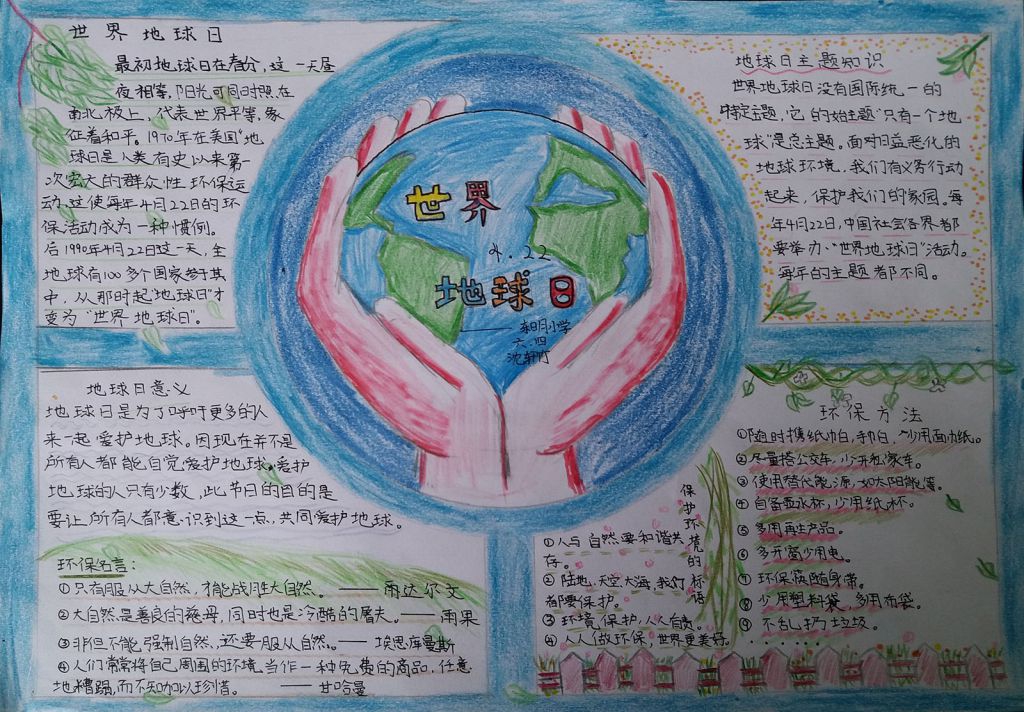 世界地球日
最初地球日在春分,这一天昼
夜相等,阳光可同时照在
南北极上,代表世界平等,象
征着和平。1970年在美国“地
球日是人类有史以来第一
次宏大的群众性环保运
动.这使每年4月22日的环
保活动成为一种惯例。
后1990年4月22日这一天,全
地球有100多个国家参于其
中,从那时起“地球日”才
变为“世界地球日”。
世界
4.22
地球日
——东明小学
六.四
沈轩竹
地球日主题知识
世界地球日没有国际统一的
特定主题,它的始主题“只有一个地
球”是总主题。面对日益恶化的
地球环境,我们有义务行动
起来,保护我们的家园。每
年4月22日,中国社会各界都
要举办“世界地球日”活动。
每年的主题都不同。
地球日意义
地球日是为了呼吁更多的人
来一起爱护地球。因现在并不是
所有人都能自觉爱护地球。爱护
地球的人只有少数,此节日的目的是
要让所有人都意识到这一点,共同爱护地球。
环保名言:
①只有服从大自然,才能战胜大自然。——雨达尔文
②大自然是善良的慈母,同时也是冷酷的屠夫。——雨果
③非但不能强制自然,还要服从自然。——埃思库曼斯
④人们常常将自己周围的环境当作一种免费的商品,任意
地糟蹋,而不知加以珍惜。——甘哈曼
保护环境的标语
①人与自然要和谐共
存。
②陆地,天空,大海,我们
都要保护。
③环境保护,人人有责。
④人人做环保,世界更美好。
环保方法
①随时携纸巾白,手帕,少用面巾纸。
②尽量搭公交车,少开私家车。
③使用替代能源,如太阳能等。
④自备壶水杯,少用纸杯。
⑤多用再生产品。
⑥多开窗少用电。
⑦环保筷随身带。
⑧少用塑料袋,多用布袋。
⑨不乱扔垃圾。